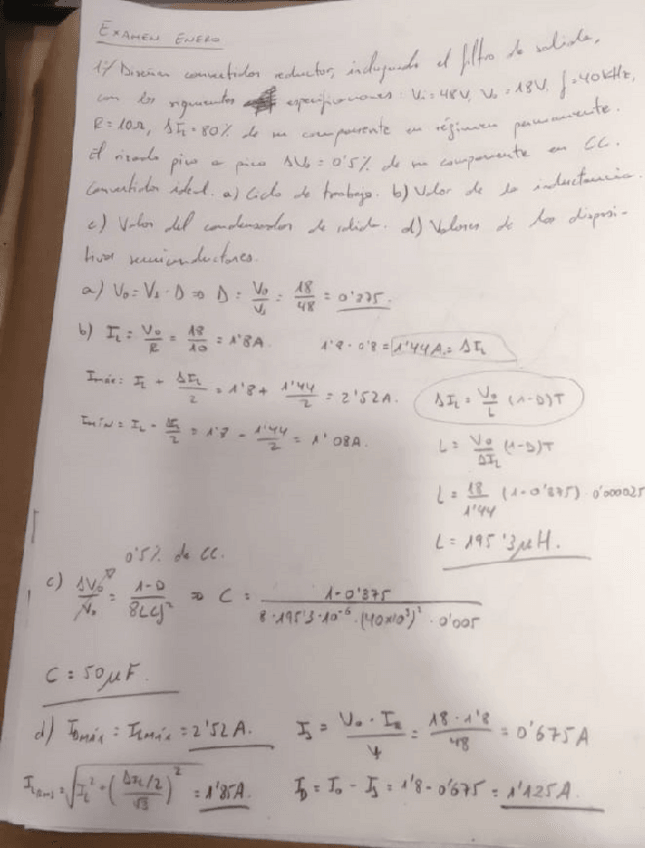 EXAMEN ENERO
1º/ Diseñar convertidor reductor, incluyendo el filtro de salida,
con los siguientes especificaciones: Vi = 48V, Vo = 18V, f = 40 kHz,
R = 10Ω, ΔIL = 80% de su componente en régimen permanente.
El rizado pico a pico ΔVo = 0'5% de su componente en CC.
Convertidor ideal. a) Ciclo de trabajo. b) Valor de la inductancia.
c) Valor del condensador de salida. d) Valores de los disposi-
tivos semiconductores.
a) Vo = Vs · D ⇒ D = Vo/Vs = 18/48 = 0'375.
b) IL = Vo/R = 18/10 = 1'8A. 1'8 · 0'8 = 1'44A = ΔIL
Imáx = IL + ΔIL/2 = 1'8 + 1'44/2 = 2'52A. ΔIL = Vo/L (1-D)T
Imín = IL - ΔIL/2 = 1'8 - 1'44/2 = 1'08A. L = Vo/ΔIL (1-D)T
L = 18/1'44 (1-0'375) · 0'000025
L = 195'3μH.
0'5% de CC.
c) ΔVo/Vo = 1-D/8LCf² ⇒ C = 1-0'375/8·195'3·10⁻⁶·(40x10³)²·0'005
C = 50μF.
d) IDmáx = ILmáx = 2'52A. Is = Vo · IL/V = 18 · 1'8/48 = 0'675A
ILrms = √IL² + (ΔIL/2/√3)² = 1'85A. ID = Io - Is = 1'8 - 0'675 = 1'125A.